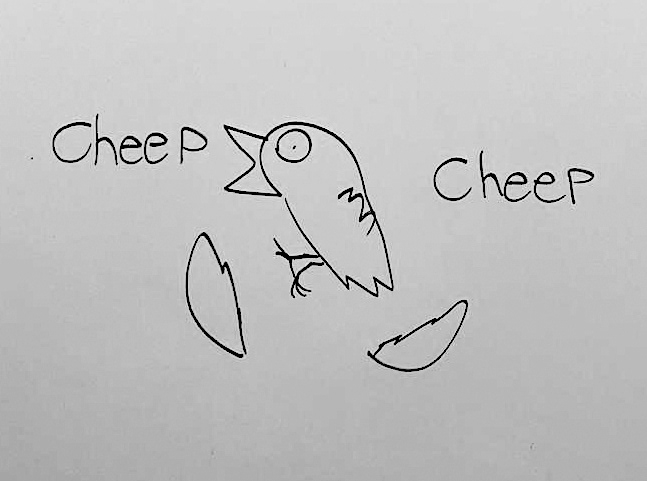 Cheep
Cheep